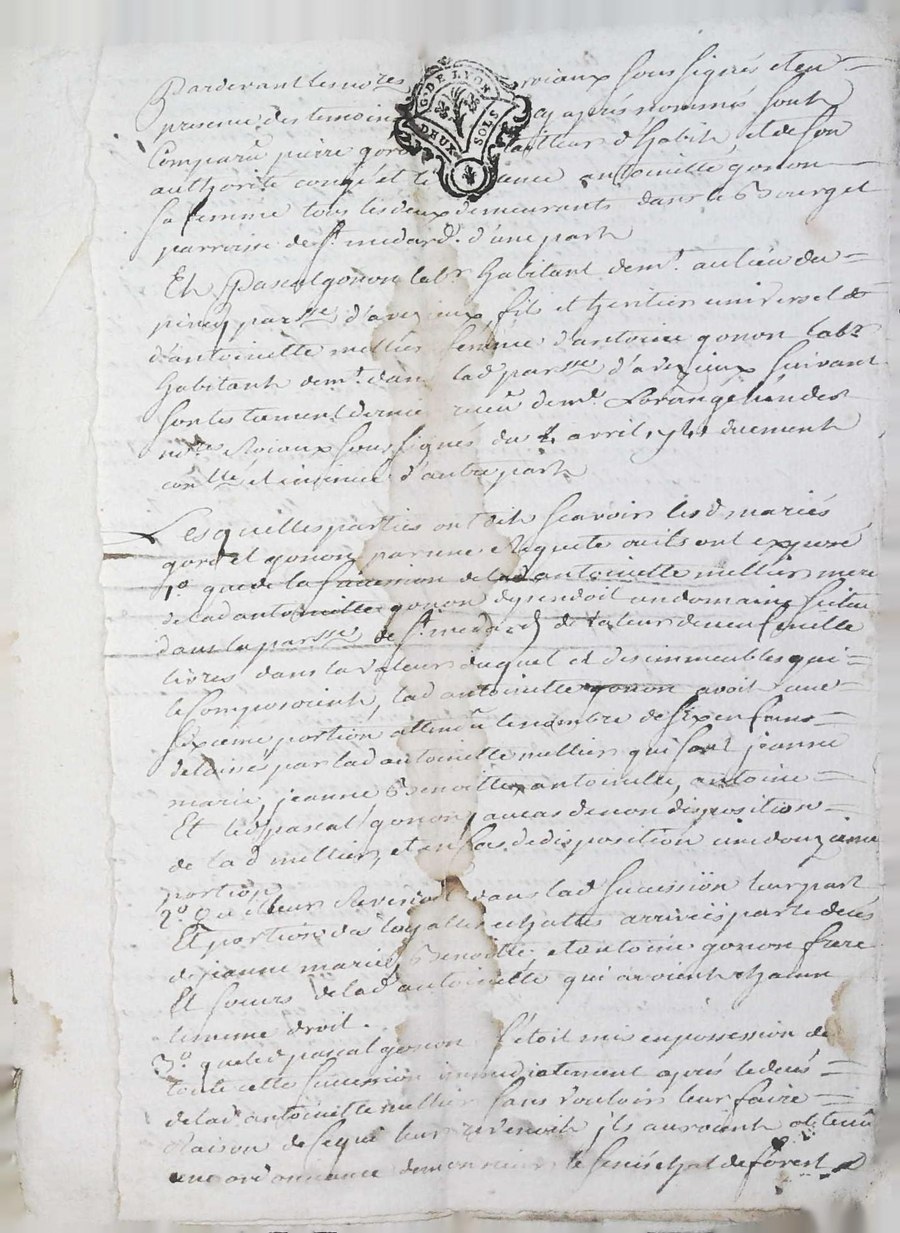 Pardevant les no.res royaux soussignés et en
presence des temoins cy aprés nommés sont
G. DE LYON
DEUX SOLS
Comparu pierre tailleur d'habit, et de son
authorité congé et antoinette gonon
sa femme tous les deux demeurants dans le Bourg et
parroisse de st. medard. d'une part
Et Pascal gonon lab.r habitant dem.t au lieu du
piney parsse d'avezieux fils et heritier universel
d'antoinette mellier femme d'antoine gonon lab.r
habitant dem.t dans lad parsse d'avezieux suivant
son testament dernier recu de
no.res Roiaux soussignés du avril duement
con.llé et insinué d'autre part
Lesquelles parties ont dit scavoir lesd mariés
et gonon par une Requete ou ils ont exposé
1.o que de la succession de lad antoinette mellier mere
de lad antoinette gonon dependoit un domaine scitué
dans la parsse de st. medard de valeur de neuf mille
livres dans la valeur duquel et des immeubles qui
le composoient, lad antoinette gonon avoit une
sixieme portion attendu le nombre de six enfans
delaisé par lad antoinette mellier qui sont jeanne
marie, jeanne, Benoitte, antoinette, antoine
Et led pascal gonon, au cas de non disposition
de lad mellier, et en cas de disposition une douzieme
portion
2.o Qu'il leur revenoit dans lad succession leur part
Et portion des loyalles echuttes arrivées par le decés
de jeanne marie, Benoitte, et antoine gonon frere
Et soeurs de lad antoinette qui avoient chacun
le meme droit.
3.o que led pascal gonon s'etoit mis en possession de
toute cette succession immediatement aprés le decés
de lad antoinette mellier sans vouloir leur faire
Raison de se qui leur revenoit, ils auroient obtenu
une ordonnance de monsieur le senéchal de forest